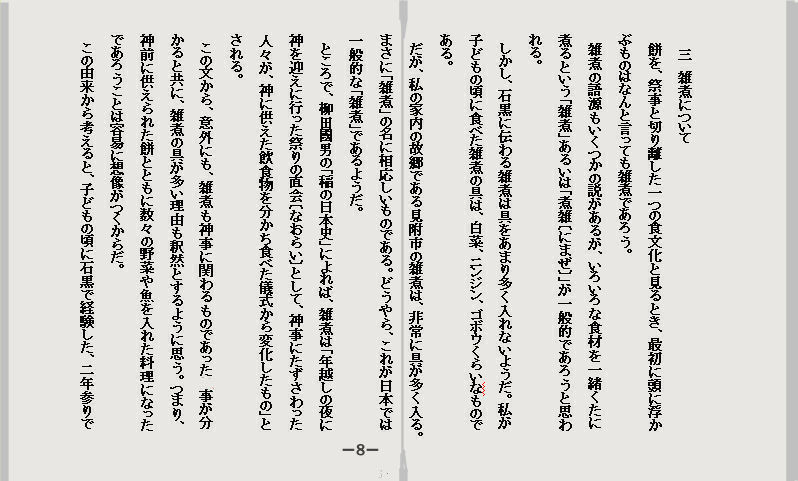 三　雑煮について
餅を、祭事と切り離した一つの食文化と見るとき、最初に頭に浮か
ぶものはなんと言っても雑煮であろう。
雑煮の語源もいくつかの説があるが、いろいろな食材を一緒くたに
煮るという「雑煮」あるいは「煮雑（にまぜ）」が一般的であろうと思わ
れる。
しかし、石黒に伝わる雑煮は具をあまり多く入れないようだ。私が
子どもの頃に食べた雑煮の具は、白菜、ニンジン、ゴボウくらいなもので
ある。
だが、私の家内の故郷である見附市の雑煮は、非常に具が多く入る。
まさに「雑煮」の名に相応しいものである。どうやら、これが日本では
一般的な「雑煮」であるようだ。
ところで、柳田國男の「稲の日本史」によれば、雑煮は「年越しの夜に
神を迎えに行った祭りの直会（なおらい）として、神事にたずさわった
人々が、神に供えた飲食物を分かち食べた儀式から変化したもの」と
される。
この文から、意外にも、雑煮も神事に関わるものであった　事が分
かると共に、雑煮の具が多い理由も釈然とするように思う。つまり、
神前に供えられた餅とともに数々の野菜や魚を入れた料理になった
であろうことは容易に想像がつくからだ。
この由来から考えると、子どもの頃に石黒で経験した、二年参りで
－8－